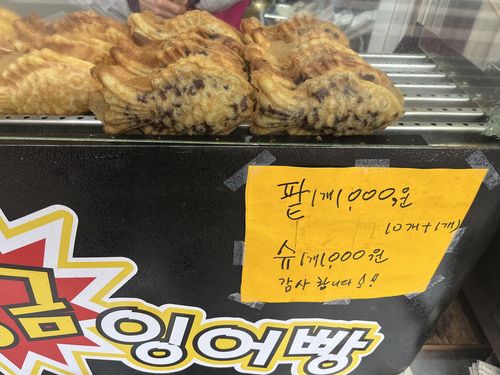 팥 1개 1,000원
10개+1개
슈 1개 1,000원
감사합니다
금잉어빵